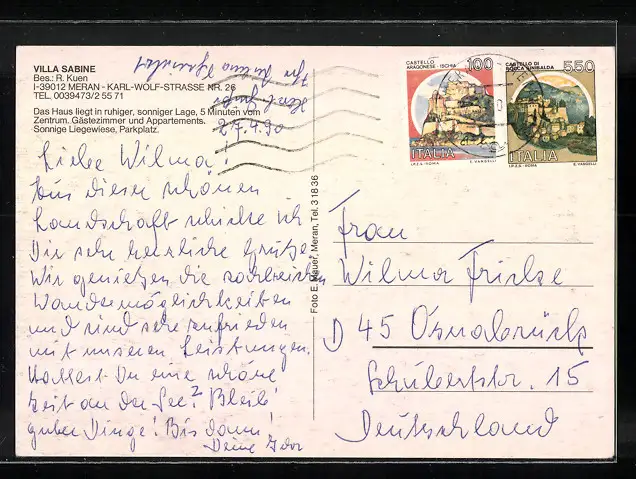 VILLA SABINE
Bes.: R. Kuen
I-39012 MERAN - KARL-WOLF-STRASSE NR. 26
TEL. 0039473/2 55 71
Das Haus liegt in ruhiger, sonniger Lage, 5 Minuten vom
Zentrum. Gästezimmer und Appartements.
Sonnige Liegewiese, Parkplatz.
27.4.90
Liebe Wilma!
Aus dieser schönen
Landschaft schicke ich
Dir sehr herzliche Grüße.
Wir genießen die zahlreichen
Wandermöglichkeiten
und sind sehr zufrieden
mit unseren Leistungen.
Hattest Du eine schöne
Zeit an der See? Bleib
guter Dinge! Bis dann!
Deine
Foto E. Mauer, Meran, Tel. 31836
CASTELLO
ARAGONESE - ISCHIA
100
ITALIA
I.P.Z.S. - ROMA
E. VANGELLI
CASTELLO DI
ROCCA SINIBALDA
550
ITALIA
I.P.Z.S. - ROMA
E. VANGELLI
Frau
Wilma Fricke
D 45 Osnabrück
Schubertstr. 15
Deutschland